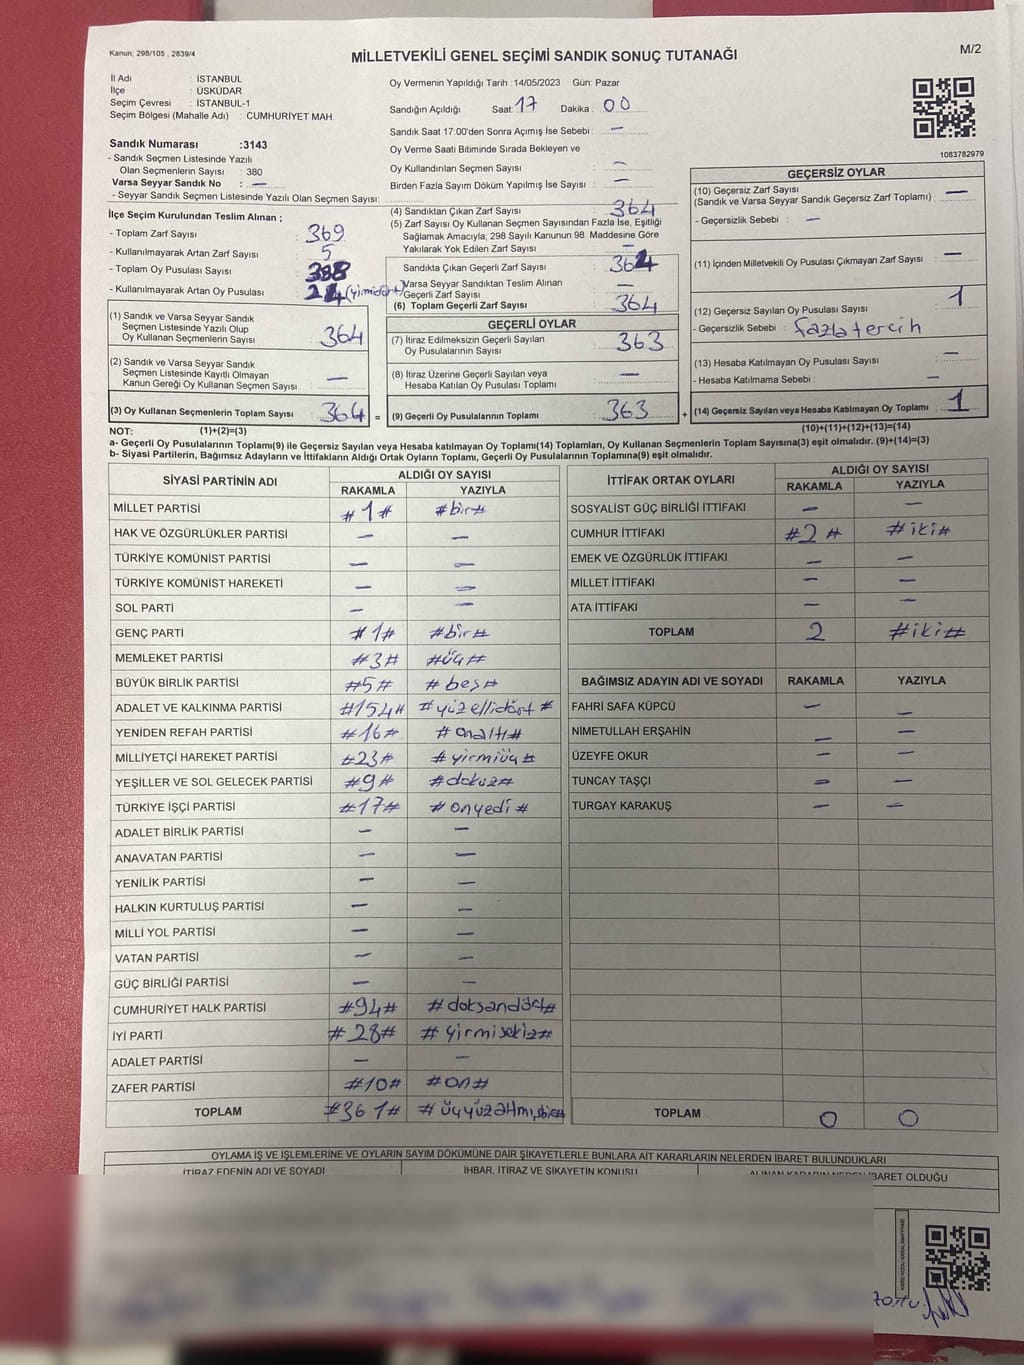 Kanun: 298/105 , 2839/4
MİLLETVEKİLİ GENEL SEÇİMİ SANDIK SONUÇ TUTANAĞI
M/2
İl Adı : İSTANBUL
İlçe : ÜSKÜDAR
Seçim Çevresi : İSTANBUL-1
Seçim Bölgesi (Mahalle Adı) : CUMHURİYET MAH.
Sandık Numarası :3143
- Sandık Seçmen Listesinde Yazılı
Olan Seçmenlerin Sayısı : 380
Varsa Seyyar Sandık No : —
- Seyyar Sandık Seçmen Listesinde Yazılı Olan Seçmen Sayısı:
Oy Vermenin Yapıldığı Tarih :14/05/2023 Gün: Pazar
Sandığın Açıldığı Saat: 17 Dakika : 00
Sandık Saat 17.00'den Sonra Açımış İse Sebebi : —
Oy Verme Saati Bitiminde Sırada Bekleyen ve
Oy Kullandırılan Seçmen Sayısı : —
Birden Fazla Sayım Döküm Yapılmış İse Sayısı : —
1083782979
İlçe Seçim Kurulundan Teslim Alınan ;
- Toplam Zarf Sayısı : 369
- Kullanılmayarak Artan Zarf Sayısı : 5
- Toplam Oy Pusulası Sayısı : 388
- Kullanılmayarak Artan Oy Pusulası : 24 (yirmidört)
(1) Sandık ve Varsa Seyyar Sandık
Seçmen Listesinde Yazılı Olup
Oy Kullanan Seçmenlerin Sayısı : 364
(2) Sandık ve Varsa Seyyar Sandık
Seçmen Listesinde Kayıtlı Olmayan
Kanun Gereği Oy Kullanan Seçmen Sayısı : —
(3) Oy Kullanan Seçmenlerin Toplam Sayısı : 364 =
(4) Sandıktan Çıkan Zarf Sayısı : 364
(5) Zarf Sayısı Oy Kullanan Seçmen Sayısından Fazla İse, Eşitliği
Sağlamak Amacıyla; 298 Sayılı Kanunun 98. Maddesine Göre
Yakılarak Yok Edilen Zarf Sayısı : —
Sandıkta Çıkan Geçerli Zarf Sayısı : 364
Varsa Seyyar Sandıktan Teslim Alınan
Geçerli Zarf Sayısı : —
(6) Toplam Geçerli Zarf Sayısı : 364
GEÇERLİ OYLAR
(7) İtiraz Edilmeksizin Geçerli Sayılan
Oy Pusulalarının Sayısı : 363
(8) İtiraz Üzerine Geçerli Sayılan veya
Hesaba Katılan Oy Pusulası Toplamı : —
(9) Geçerli Oy Pusulalarının Toplamı : 363 +
GEÇERSİZ OYLAR
(10) Geçersiz Zarf Sayısı
(Sandık ve Varsa Seyyar Sandık Geçersiz Zarf Toplamı) : —
- Geçersizlik Sebebi : —
(11) İçinden Milletvekili Oy Pusulası Çıkmayan Zarf Sayısı : —
(12) Geçersiz Sayılan Oy Pusulası Sayısı : 1
- Geçersizlik Sebebi : fazla tercih
(13) Hesaba Katılmayan Oy Pusulası Sayısı : —
- Hesaba Katılmama Sebebi : —
(14) Geçersiz Sayılan veya Hesaba Katılmayan Oy Toplamı : 1
NOT: (1)+(2)=(3) (10)+(11)+(12)+(13)=(14)
a- Geçerli Oy Pusulalarının Toplamı(9) ile Geçersiz Sayılan veya Hesaba katılmayan Oy Toplamı(14) Toplamları, Oy Kullanan Seçmenlerin Toplam Sayısına(3) eşit olmalıdır. (9)+(14)=(3)
b- Siyasi Partilerin, Bağımsız Adayların ve İttifakların Aldığı Ortak Oyların Toplamı, Geçerli Oy Pusulalarının Toplamına(9) eşit olmalıdır.
SİYASİ PARTİNİN ADI ALDIĞI OY SAYISI
RAKAMLA YAZIYLA
MİLLET PARTİSİ #1# #bir#
HAK VE ÖZGÜRLÜKLER PARTİSİ — —
TÜRKİYE KOMÜNİST PARTİSİ — —
TÜRKİYE KOMÜNİST HAREKETİ — —
SOL PARTİ — —
GENÇ PARTİ #1# #bir#
MEMLEKET PARTİSİ #3# #üç#
BÜYÜK BİRLİK PARTİSİ #5# #beş#
ADALET VE KALKINMA PARTİSİ #154# #yüzellidört#
YENİDEN REFAH PARTİSİ #16# #onaltı#
MİLLİYETÇİ HAREKET PARTİSİ #23# #yirmiüç#
YEŞİLLER VE SOL GELECEK PARTİSİ #9# #dokuz#
TÜRKİYE İŞÇİ PARTİSİ #17# #onyedi#
ADALET BİRLİK PARTİSİ — —
ANAVATAN PARTİSİ — —
YENİLİK PARTİSİ — —
HALKIN KURTULUŞ PARTİSİ — —
MİLLİ YOL PARTİSİ — —
VATAN PARTİSİ — —
GÜÇ BİRLİĞİ PARTİSİ — —
CUMHURİYET HALK PARTİSİ #94# #doksandört#
İYİ PARTİ #28# #yirmisekiz#
ADALET PARTİSİ — —
ZAFER PARTİSİ #10# #on#
TOPLAM #361# #üçyüzaltmışbir#
İTTİFAK ORTAK OYLARI ALDIĞI OY SAYISI
RAKAMLA YAZIYLA
SOSYALİST GÜÇ BİRLİĞİ İTTİFAKI — —
CUMHUR İTTİFAKI #2# #iki#
EMEK VE ÖZGÜRLÜK İTTİFAKI — —
MİLLET İTTİFAKI — —
ATA İTTİFAKI — —
TOPLAM 2 #iki#
BAĞIMSIZ ADAYIN ADI VE SOYADI RAKAMLA YAZIYLA
FAHRİ SAFA KÜPCÜ — —
NİMETULLAH ERŞAHİN — —
ÜZEYFE OKUR — —
TUNCAY TAŞÇI — —
TURGAY KARAKUŞ — —
TOPLAM 0 0
OYLAMA İŞ VE İŞLEMLERİNE VE OYLARIN SAYIM DÖKÜMÜNE DAİR ŞİKAYETLERLE BUNLARA AİT KARARLARIN NELERDEN İBARET BULUNDUKLARI
İTİRAZ EDENİN ADI VE SOYADI İHBAR, İTİRAZ VE ŞİKAYETİN KONUSU ALINAN KARARIN NEDEN İBARET OLDUĞU